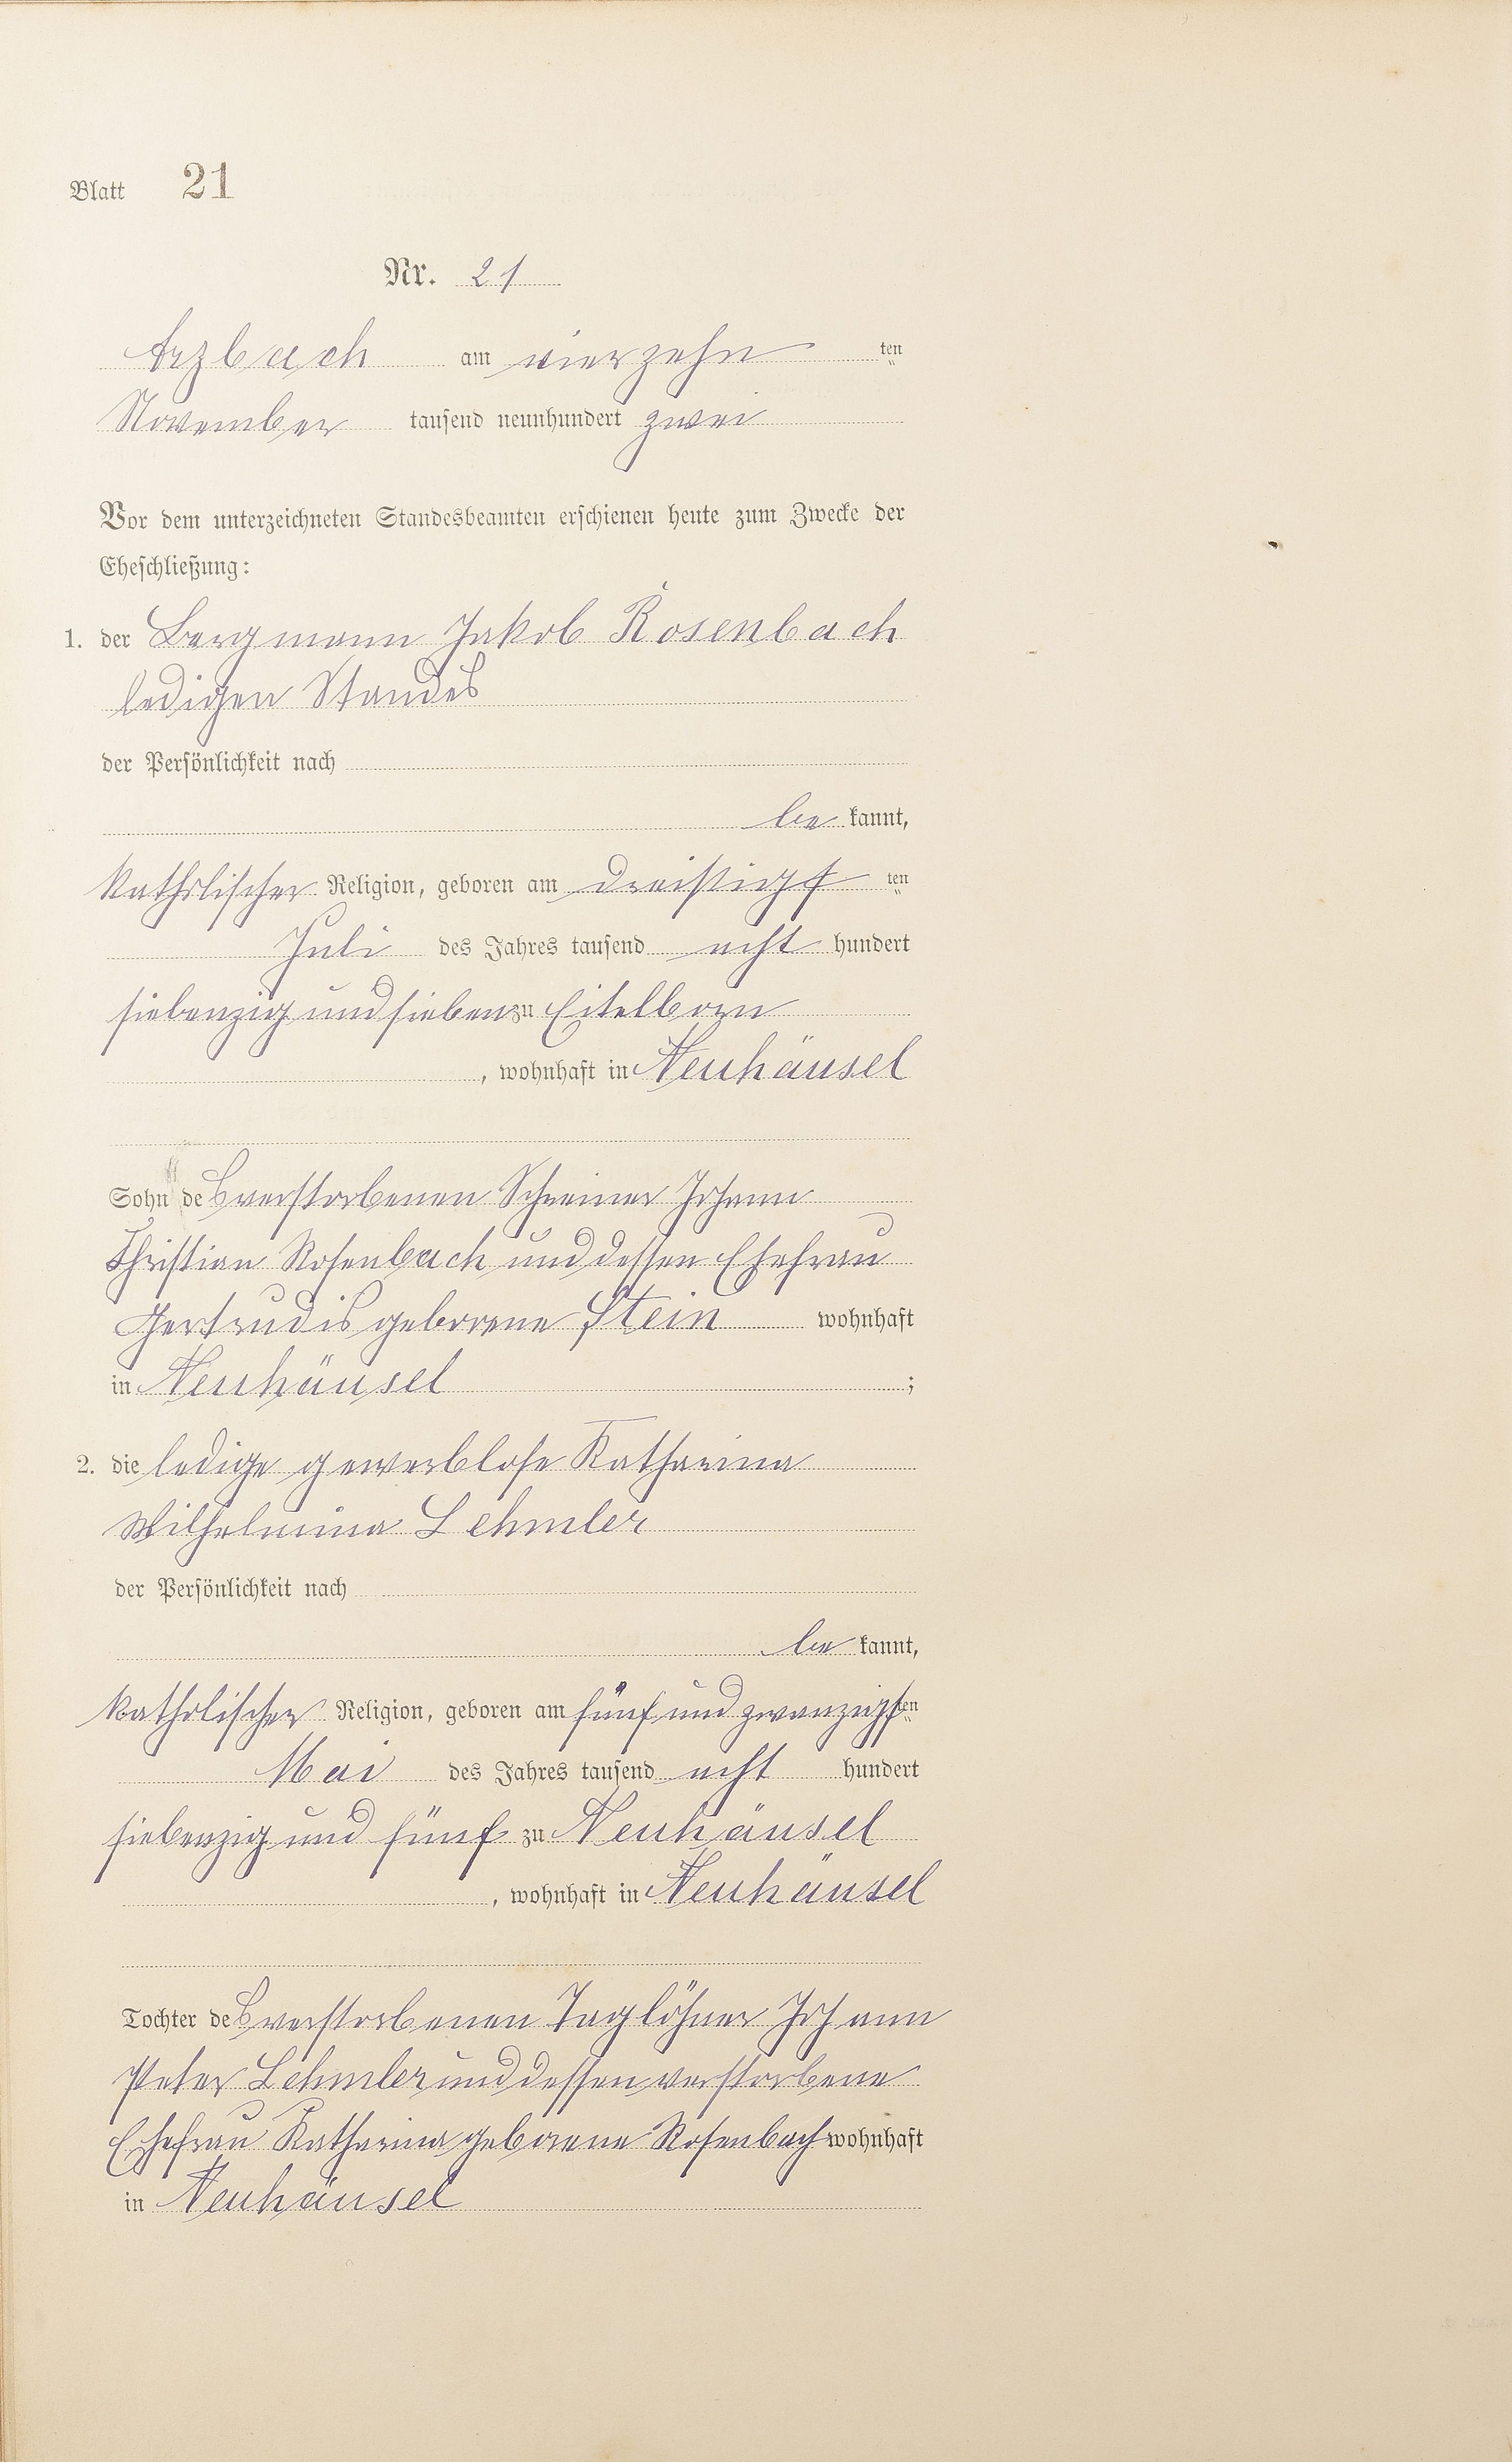 Blatt 21
Nr. 21
Arzbach am vierzehn ten
November tausend neunhundert zwei
Vor dem unterzeichneten Standesbeamten erschienen heute zum Zwecke der
Eheschließung:
1. der Bergmann Jakob Rosenbach
ledigen Standes
der Persönlichkeit nach
be kannt,
katholischer Religion, geboren am dreißigst ten
Juli des Jahres tausend acht hundert
siebenzig und sieben zu Eitelborn
, wohnhaft in Neuhäusel
Sohn des verstorbenen Schreiner Johann
Christian Rosenbach und dessen Ehefrau
Gertrudis geborene Stein wohnhaft
in Neuhäusel ;
2. die ledige gewerblose Katharina
Wilhelmina Lehmler
der Persönlichkeit nach
be kannt,
katholischer Religion, geboren am fünf und zwanzigsten
Mai des Jahres tausend acht hundert
siebenzig und fünf zu Neuhäusel
, wohnhaft in Neuhäusel
Tochter des verstorbenen Taglöhner Johann
Peter Lehmler und dessen verstorbene
Ehefrau Katharina geborene Rosenbach wohnhaft
in Neuhäusel